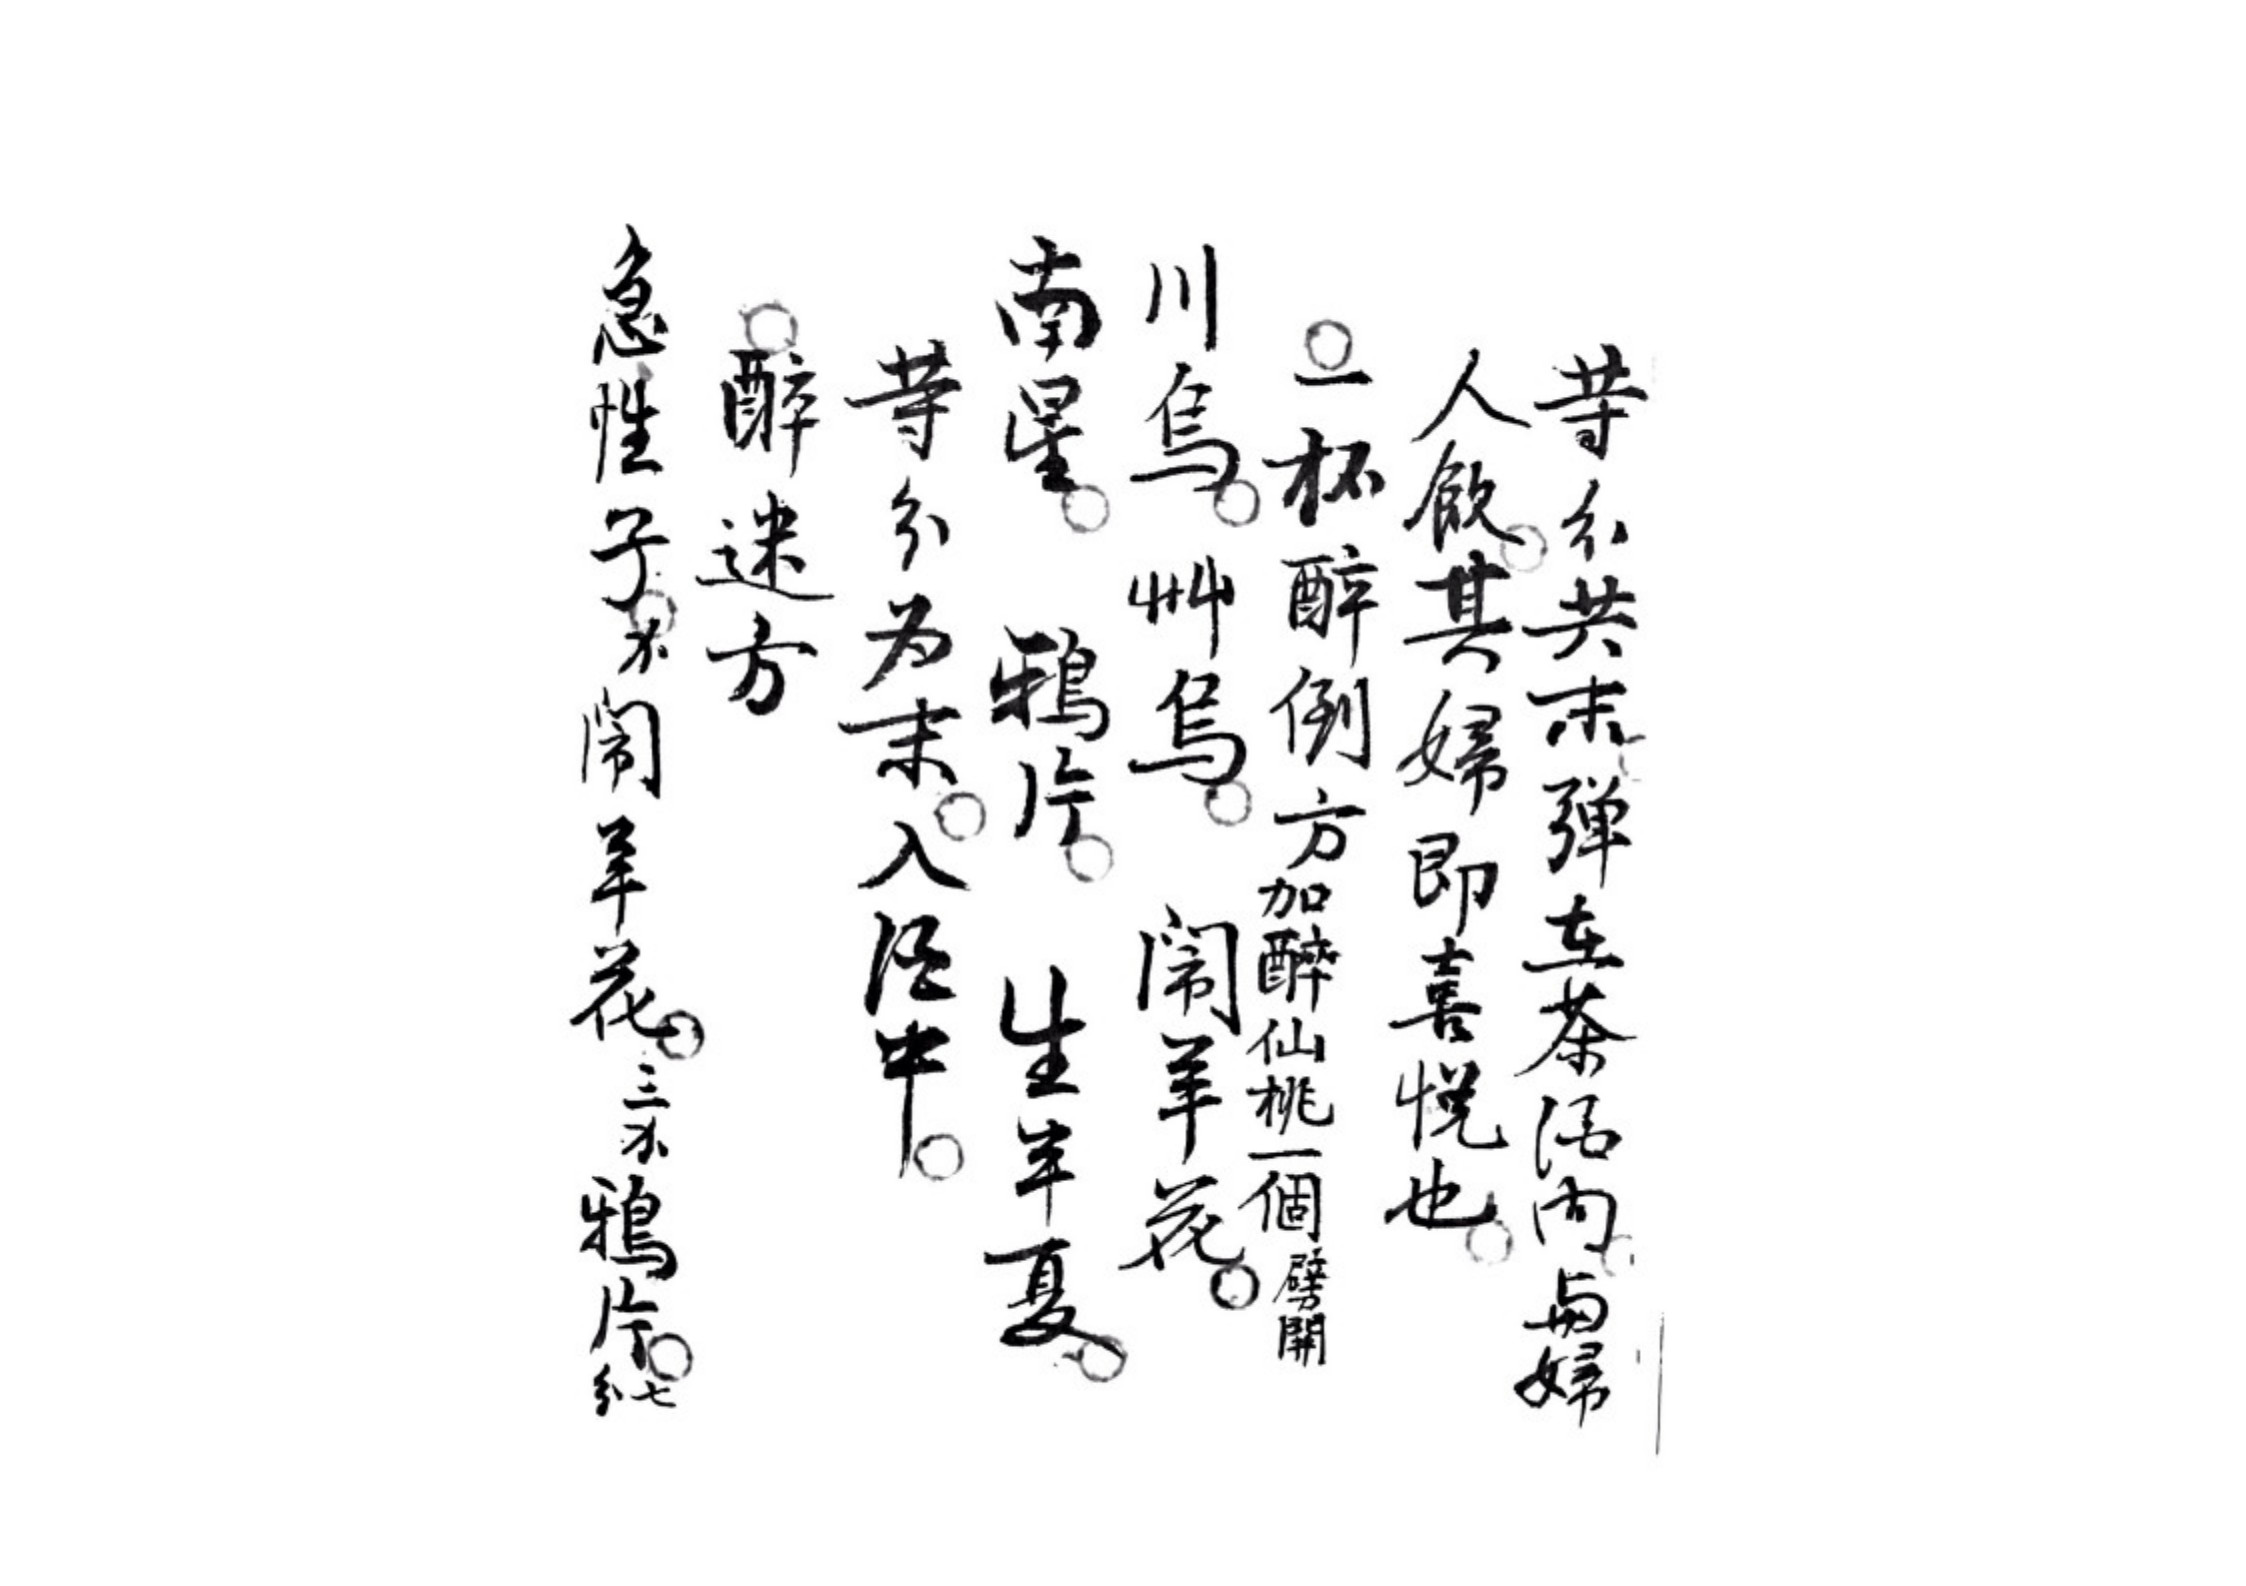 等分共末弹在茶酒内与婦
人飲其婦即喜悦也
一杯醉倒方加醉仙桃一個劈開
川烏艸烏鬧羊花
南星鴉片生半夏
等分为末入酒中
醉迷方
急性子才鬧羊花三才鴉片七分